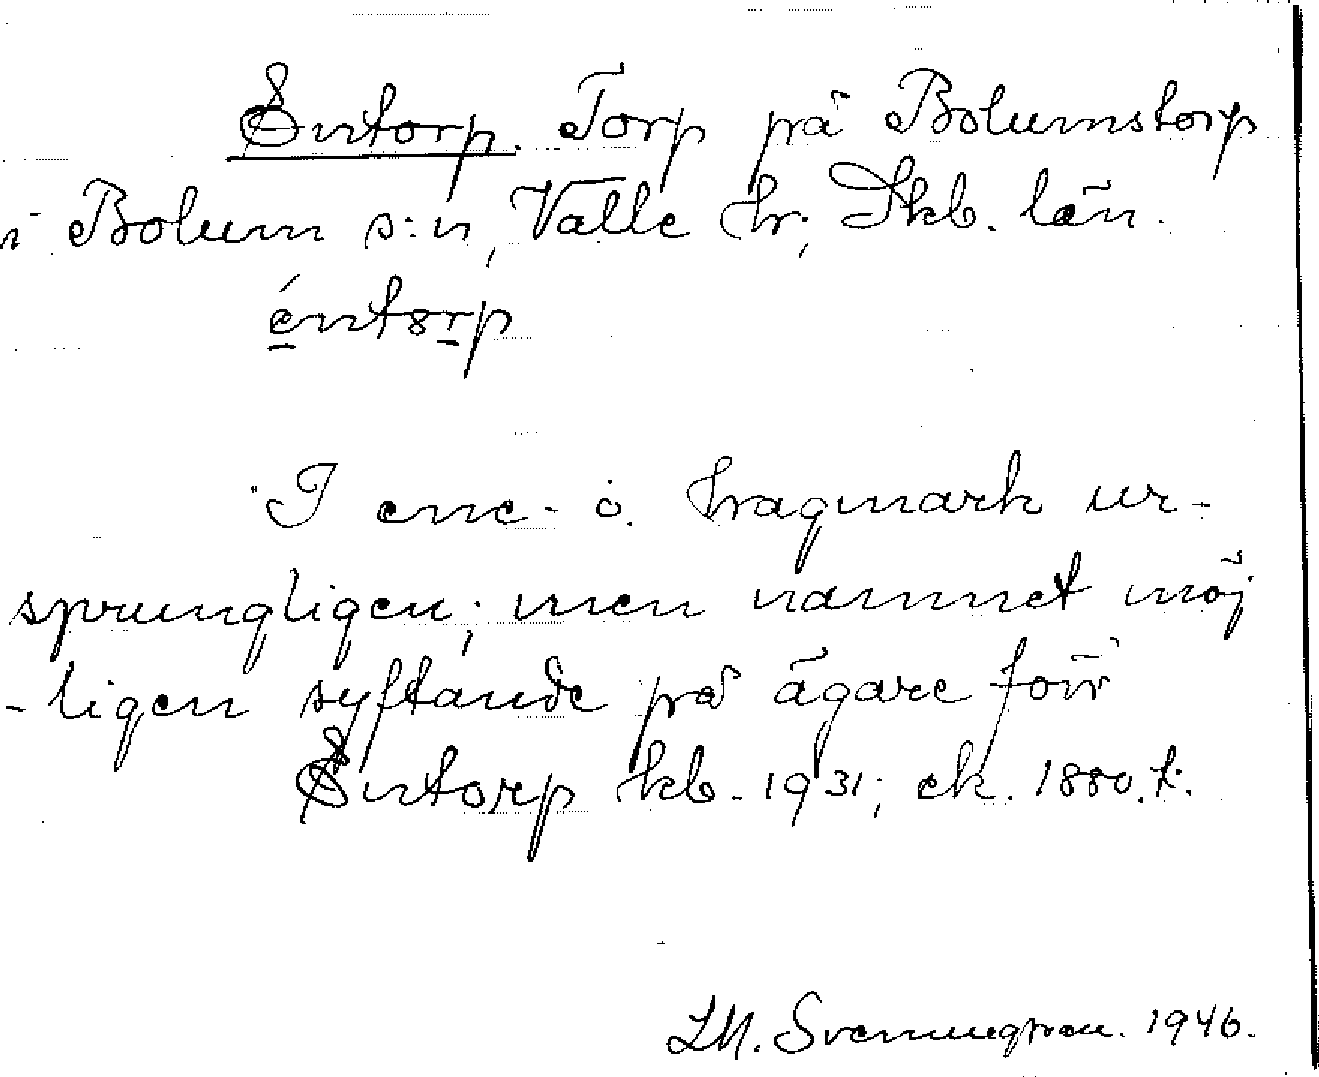 Entorp. Torp på Bolumstorp
i Bolum s:n, Valle hr; Skb. län.
éntorp
"I ene- o. hagmark ur-
sprungligen; men namnet möj
-ligen syftande på ägare förr"
Entorp kb. 1931; ek. 1880.t.
LM. Svenungsson. 1946.